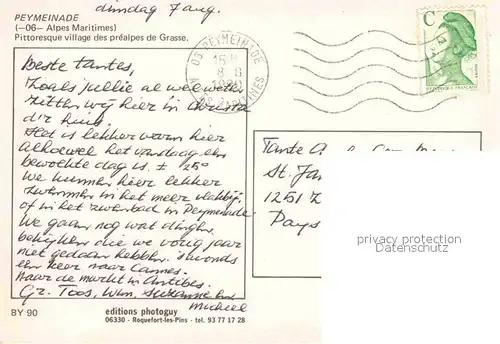 dinsdag 7 aug.
PEYMEINADE
(—06— Alpes Maritimes)
Pittoresque village des préalpes de Grasse.
06 PEYMEINADE
C
Beste tantes,
Zoals jullie al wel weten
zitten wij hier in Christa
d'r huis.
Het is lekker warm hier
Alhoewel het vandaag een
bewolkte dag is ± 25°
We kunnen hier lekker
zwemmen in het meer vlakbij,
of in het zwembad in Peymeinade
We gaan nog wat dingen
bekijken die we vorig jaar
niet gedaan hebben. 's Avonds
een keer naar Cannes.
Naar de markt in Antibes.
Gr. Toos, Wim, Suzanne en
Michiel
Tante
St. Jan
1251
Pays
privacy protection
Datenschutz
BY 90
editions photoguy
06330 - Roquefort-les-Pins - tel. 93 77 17 28